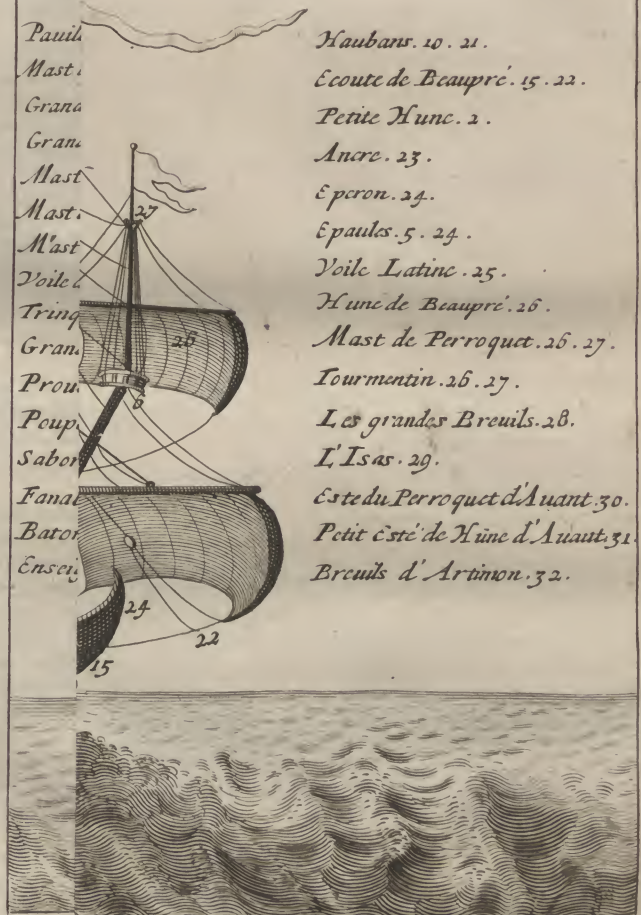 Pavill
Mast
Grand
Gran
Mast
Mast
Mast
Voile
Trinq
Gran
Prou
Poup
Sabor
Fanal
Baton
Enseig
Haubans. 10. 21.
Ecoute de Beaupré. 15. 22.
Petite Hune. 2.
Ancre. 23.
Eperon. 24.
Epaules. 5. 24.
Voile Latine. 25.
Hune de Beaupré. 26.
Mast de Perroquet. 26. 27.
Tourmentin. 26. 27.
Les grandes Breuils. 28.
L'Isas. 29.
Este du Perroquet d'Auant. 30.
Petit Esté de Hune d'Auaut. 31.
Breuils d'Artimon. 32.
27
26
24
22
15